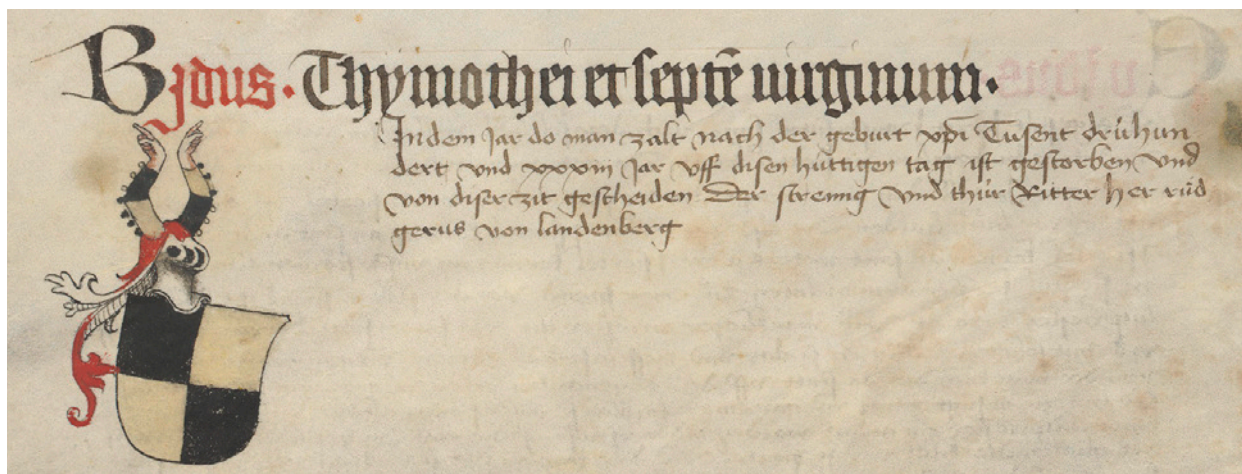 B jdus · Thymothei et septē uirginum ·
In dem Jar do man zalt nach der geburt xp̄i Tusent drühun
dert vnd xxxiii Jar vff disen hüttigen tag ist gestorben vnd
von diser zit gescheiden Der streinng vnd thür Ritter her rüd
gerus von landenberg